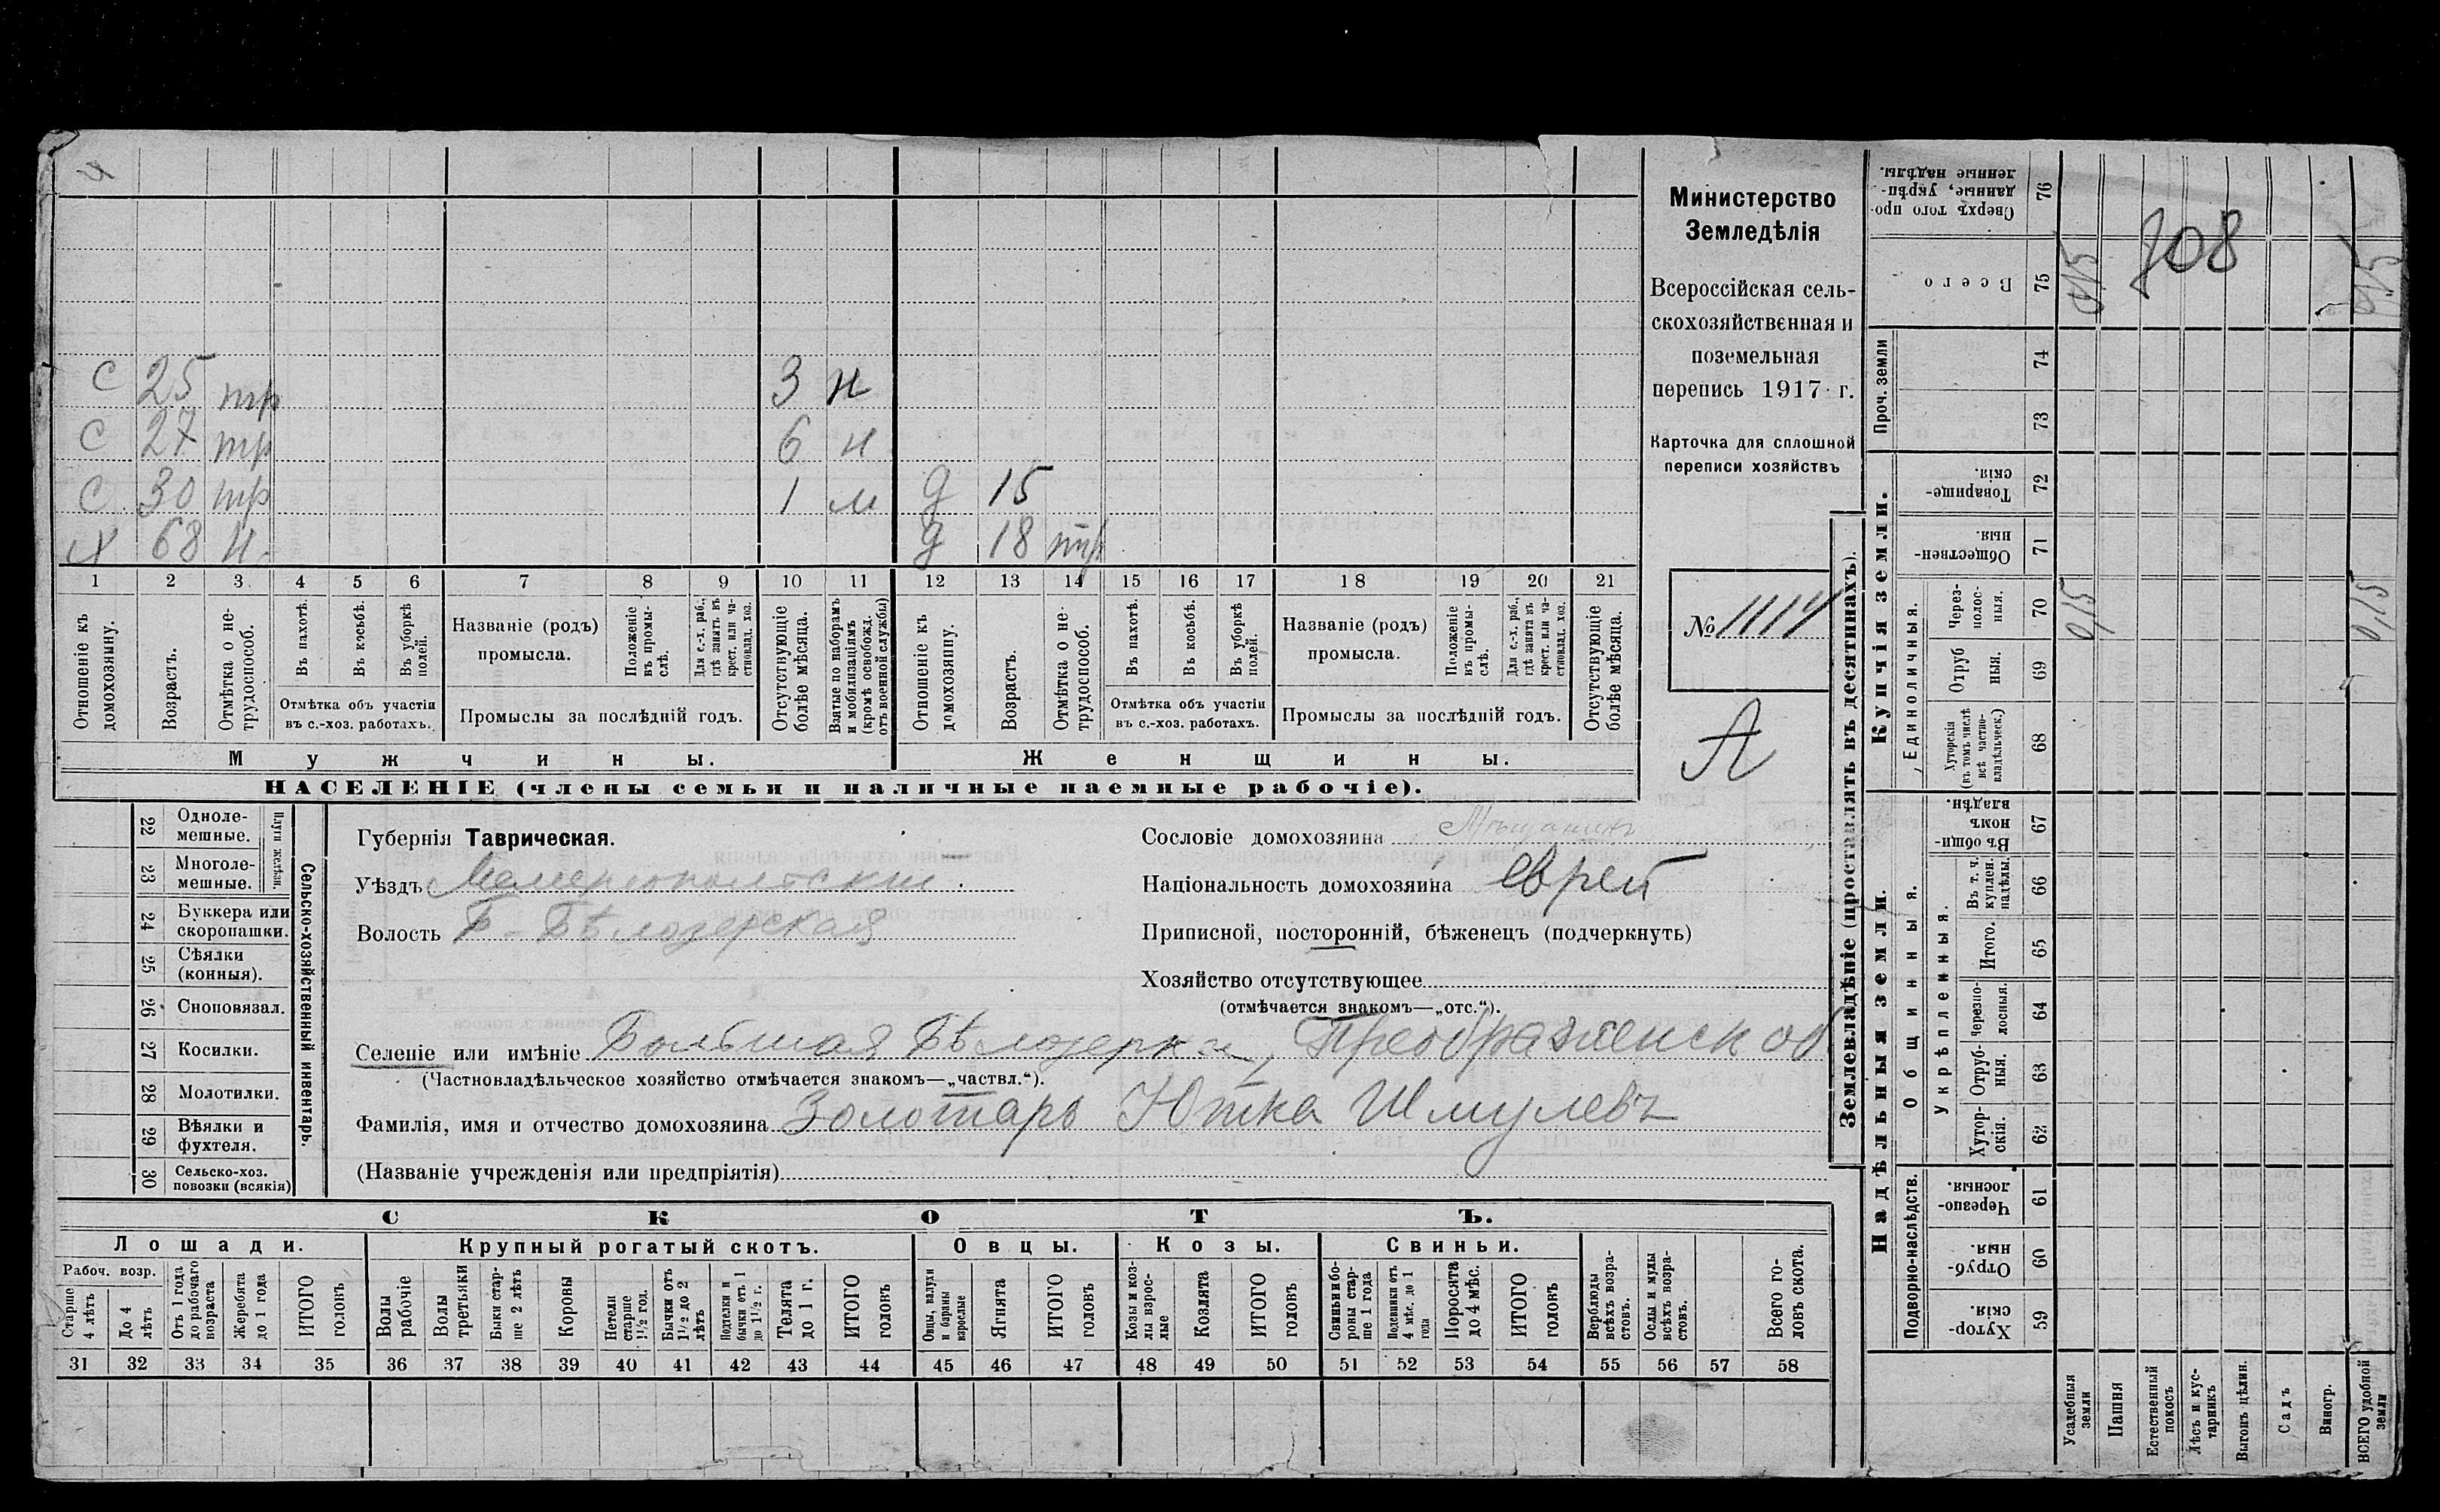 Министерство
Земледѣлія
Всероссійская сель-
скохозяйственная и
поземельная
перепись 1917 г.
Карточка для сплошной
переписи хозяйствъ
№ 1114
А
с 25 тр 3 н
с 27 тр 6 н
с 30 тр 1 м д 15
х 68 н. д 18 тр
1 2 3 4 5 6 7 8 9 10 11 12 13 14 15 16 17 18 19 20 21
Отношеніе къ домохозяину.
Возрастъ.
Отмѣтка о не-трудоспособ.
Въ пахотѣ.
Въ косьбѣ.
Въ уборкѣ полей.
Отмѣтка объ участіи
въ с.-хоз. работахъ.
Названіе (родъ)
промысла.
Положеніе въ промы-слѣ.
Для с.-х. раб., гдѣ занятъ въ крест. или ча-стновлад. хоз.
Промыслы за послѣдній годъ.
Отсутствующіе болѣе мѣсяца.
Взятые по наборамъ и мобилизаціямъ (кромѣ освобожд. отъ военной службы)
Отношеніе къ домохозяину.
Возрастъ.
Отмѣтка о не-трудоспособ.
Въ пахотѣ.
Въ косьбѣ.
Въ уборкѣ полей.
Отмѣтка объ участіи
въ с.-хоз. работахъ.
Названіе (родъ)
промысла.
Положеніе въ промы-слѣ.
Для с.-х. раб., гдѣ занята въ крест. или ча-стновлад. хоз.
Промыслы за послѣдній годъ.
Отсутствующіе болѣе мѣсяца.
Мужчины. Женщины.
НАСЕЛЕНІЕ (члены семьи и наличные наемные рабочіе).
Сельско-хозяйственный инвентарь.
Плуги желѣзн.
22 Одноле-мешные.
23 Многоле-мешные.
24 Буккера или скоропашки.
25 Сѣялки (конныя).
26 Сноповязал.
27 Косилки.
28 Молотилки.
29 Вѣялки и фухтеля.
30 Сельско-хоз. повозки (всякія)
Губернія Таврическая.
Уѣздъ Мелитопольскій.
Волость Б-Бѣлозерская
Сословіе домохозяина Мѣщанинъ
Національность домохозяина еврей
Приписной, посторонній, бѣженецъ (подчеркнуть)
Хозяйство отсутствующее
(отмѣчается знакомъ—„отс.“).
Селеніе или имѣніе Большая Бѣлозерка, Преображенской
(Частновладѣльческое хозяйство отмѣчается знакомъ—„частвл.“).
Фамилія, имя и отчество домохозяина Золотарь Ютка Шмулевъ
(Названіе учрежденія или предпріятія)
СКОТЪ.
Лошади. Крупный рогатый скотъ. Овцы. Козы. Свиньи.
Рабоч. возр.
Старше 4 лѣтъ
До 4 лѣтъ
Отъ 1 года до рабочаго возраста
Жеребята до 1 года
ИТОГО головъ
Волы рабочіе
Волы третьяки
Быки стар-ше 2 лѣтъ
Коровы
Нетели старше 1½ год.
Бычки отъ 1½ до 2 лѣтъ
Подтелки и бычки отъ 1 до 1½ г.
Телята до 1 г.
ИТОГО головъ
Овцы, валухи и бараны взрослые
Ягнята
ИТОГО головъ
Козы и коз-лы взрос-лые
Козлята
ИТОГО головъ
Свиньи и бо-ровы стар-ше 1 года
Подсвинки отъ 4 мѣс. до 1 года
Поросята до 4 мѣс.
ИТОГО головъ
Верблюды всѣхъ возра-стовъ.
Ослы и мулы всѣхъ возра-стовъ.
Всего го-ловъ скота.
31 32 33 34 35 36 37 38 39 40 41 42 43 44 45 46 47 48 49 50 51 52 53 54 55 56 57 58
Землевладѣніе (проставлять въ десятинахъ).
Надѣльныя земли. Купчія земли. Проч. земли
Подворно-наслѣдств.
Общинныя.
Укрѣпленныя.
Единоличныя.
Хутор-скія. 59
Отруб-ныя. 60
Черезпо-лосныя. 61
Хутор-скія. 62
Отруб-ныя. 63
Черезпо-лосныя. 64
Итого. 65
Въ т. ч. куплен. надѣлы. 66
Въ общи-номъ владѣн. 67
Хуторскія (въ томъ числѣ всѣ частно-владѣльческ.) 68
Отруб ныя. 69
Через-полос-ныя. 70
Обществен-ныя. 71
Товарище-скія. 72
73
74
Всего 75
Сверхъ того про-данные, укрѣп-ленные надѣлы. 76
0,15 0,15
0,15 0,15
708
Усадебныя земли
Пашня
Естественный покосъ
Лѣсъ и кус-тарникъ
Выгонъ цѣлин.
Садъ
Виногр.
ВСЕГО удобной земли